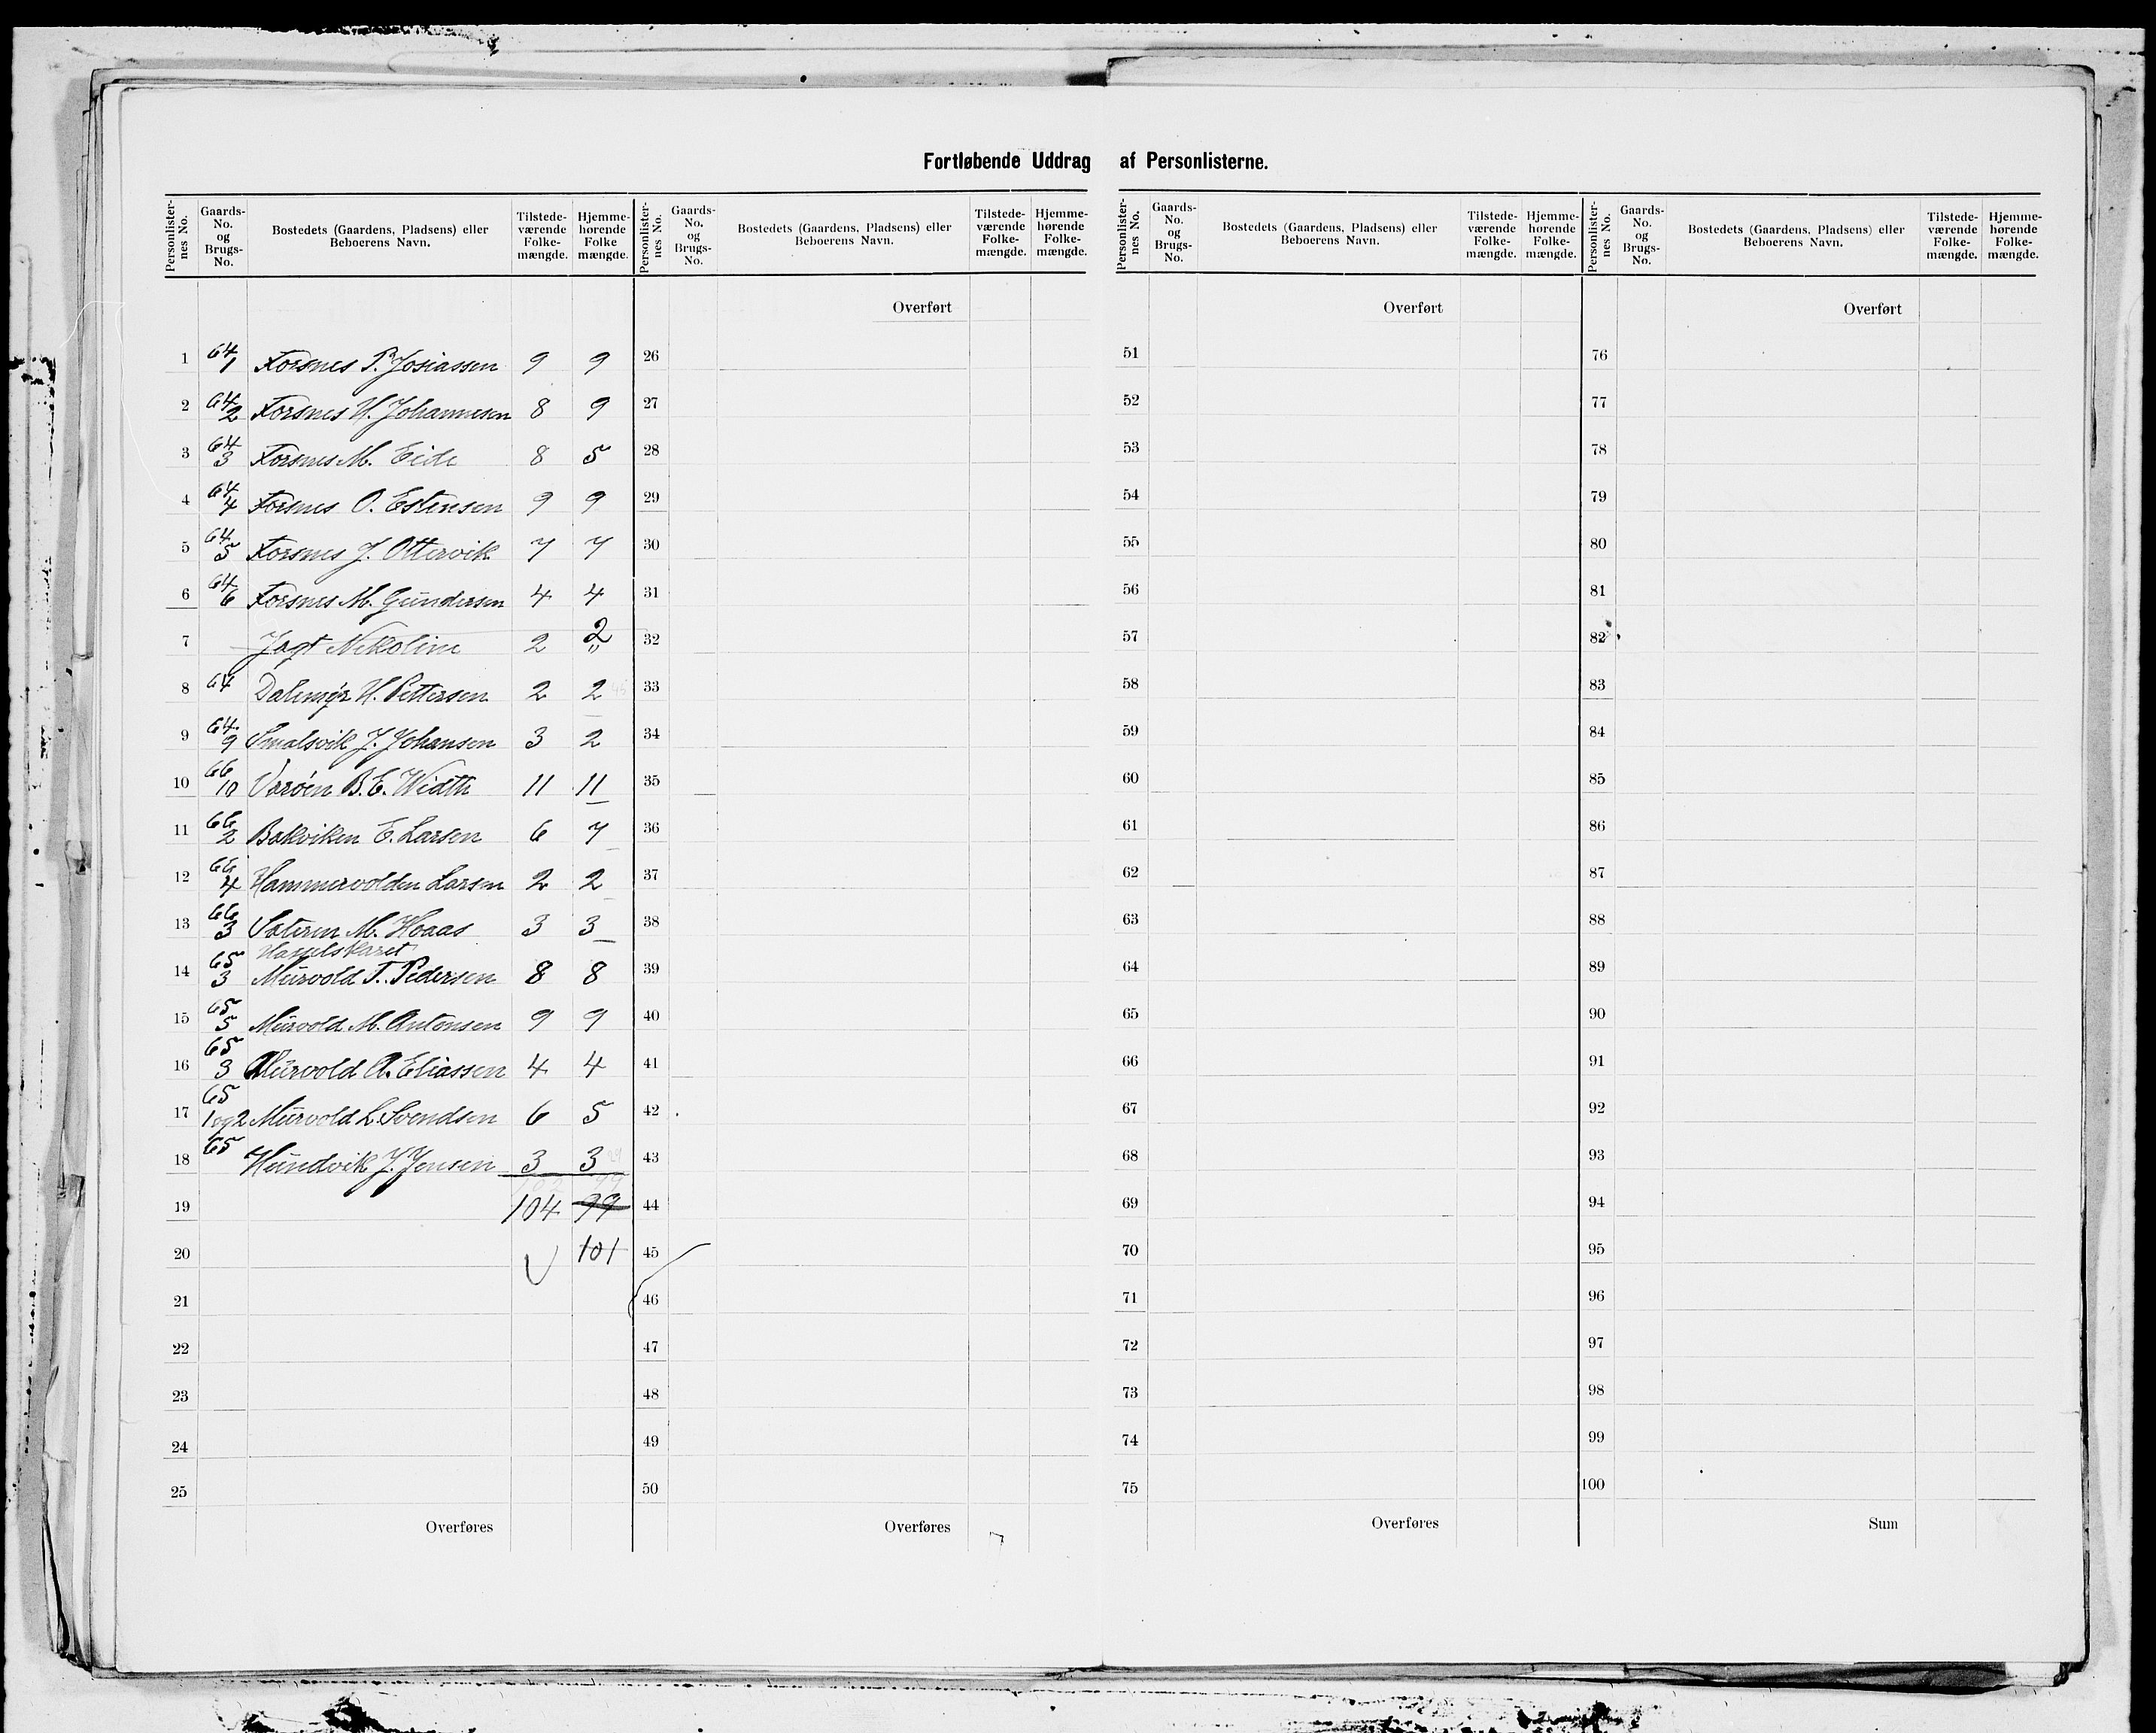 Fortløbende Uddrag af Personlisterne.
Personlister-nes No. Gaards-No. og Brugs-No. Bostedets (Gaardens, Pladsens) eller Beboerens Navn. Tilstede-værende Folke-mængde. Hjemme-hørende Folke mængde.
Personlister-nes No. Gaards-No. og Brugs-No. Bostedets (Gaardens, Pladsens) eller Beboerens Navn. Tilstede-værende Folke-mængde. Hjemme-hørende Folke-mængde.
Personlister-nes No. Gaards-No. og Brugs-No. Bostedets (Gaardens, Pladsens) eller Beboerens Navn. Tilstede-værende Folke-mængde. Hjemme-hørende Folke-mængde.
Personlister-nes No. Gaards-No. og Brugs-No. Bostedets (Gaardens, Pladsens) eller Beboerens Navn. Tilstede-værende Folke-mængde. Hjemme-hørende Folke-mængde.
1 64/1 Forsnes P. Josiassen 9 9
2 64/2 Forsnes H. Johannesen 8 9
3 64/3 Forsnes M. Eide 8 5
4 64/4 Forsnes O. Estensen 9 9
5 64/5 Forsnes J. Ottervik 7 7
6 64/6 Forsnes M. Gundersen 4 4
7 Jagt Nikoline 2 2 "
8 64 Dalemyr H. Pettersen 2 2
9 64/9 Smalsvik J. Johansen 3 2
10 66/10 Varöen B. E. Width 11 11
11 66/2 Bakviken E. Larsen 6 7
12 66/4 Hammervolden Larsen 2 2
13 66/3 Sæteren M. Hoaas 3 3
Hasselskaret
14 65/3 Murvold T. Pedersen 8 8
15 65/5 Murvold M. Antonsen 9 9
16 65/3 Murvold A. Eliassen 4 4
17 65/1 og 2 Murvold L. Svendsen 6 5
18 65 Hundvik J. Jensen 3 3
19 104 99
20 101
21
22
23
24
25
Overføres
Overført
26
27
28
29
30
31
32
33
34
35
36
37
38
39
40
41
42
43
44
45
46
47
48
49
50
Overføres
Overført
51
52
53
54
55
56
57
58
59
60
61
62
63
64
65
66
67
68
69
70
71
72
73
74
75
Overføres
Overført
76
77
78
79
80
81
82
83
84
85
86
87
88
89
90
91
92
93
94
95
96
97
98
99
100
Sum